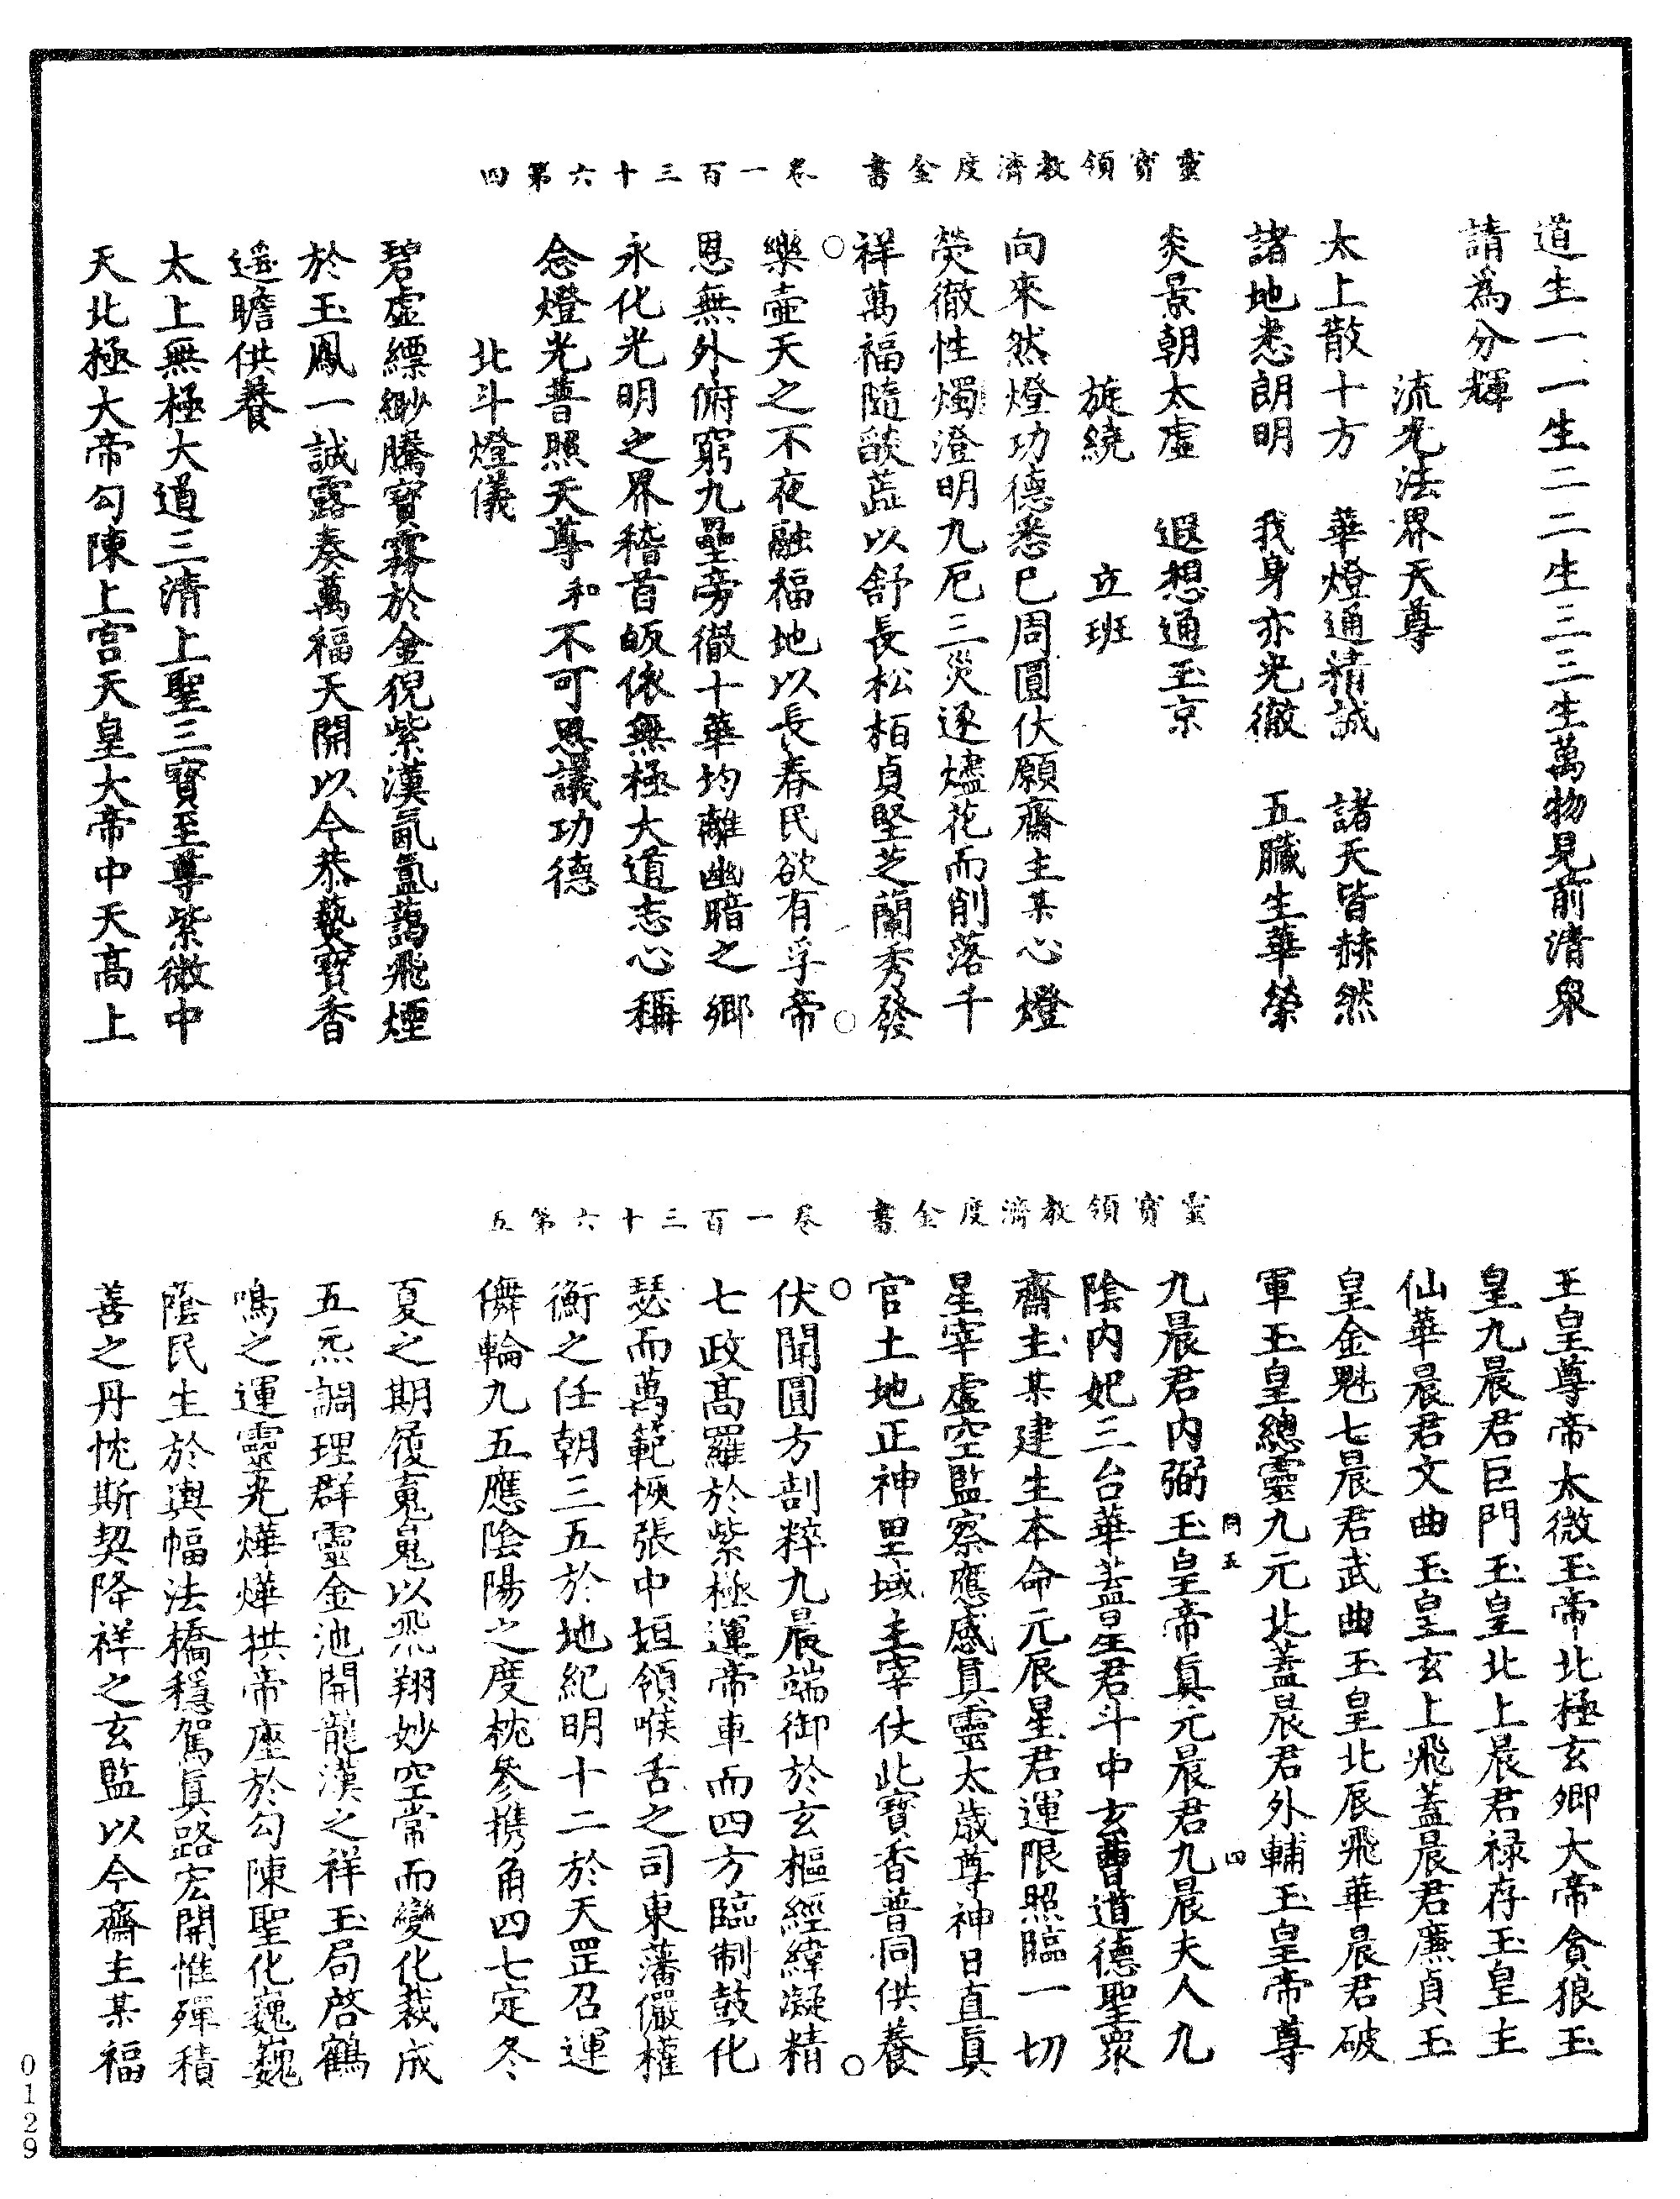 靈寶領教濟度金書　卷一百三十六第四
道生一一生二二生三三生萬物見前清衆
請爲分輝
流光法界天尊
太上散十方　華燈通精誠　諸天皆赫然
諸地悉朗明　我身亦光徹　五臟生華榮
炎景朝太虛　遐想通玉京
旋繞　立班
向來然燈功德悉已周圓伏願齋主某心燈
熒徹性燭澄明九厄三災逐燼花而削落千
祥萬福隨燄蕋以舒長松栢貞堅芝蘭秀發
樂壼天之不夜融福地以長春民欲有孚帝
恩無外俯窮九壘旁徹十華均離幽暗之鄉
永化光明之界稽首皈依無極大道志心稱
念燈光普照天尊和不可思議功德
北斗燈儀
碧虛縹緲騰寶霧於金猊紫漢氤氳藹飛煙
於玉鳳一誠露奏萬福天開以今恭爇寶香
遥瞻供養
太上無極大道三清上聖三寶至尊紫微中
天北極大帝勾陳上宫天皇大帝中天髙上
靈寶領教濟度金書　卷一百三十六第五
玉皇尊帝太微玉帝北極玄卿大帝貪狼玉
皇九晨君巨門玉皇北上晨君禄存玉皇主
仙華晨君文曲玉皇玄上飛蓋晨君廉貞玉
皇金魁七晨君武曲玉皇北辰飛華晨君破
軍玉皇總靈九元北蓋晨君外輔玉皇帝尊
同五　四
九晨君内弼玉皇帝真元晨君九晨夫人九
陰内妃三台華蓋星君斗中玄曹道德聖衆
齋主某建生本命元辰星君運限照臨一切
星宰虛空監察應感真靈太歲尊神日直真
官土地正神里域主宰仗此寶香普同供養
伏聞圓方剖粹九晨端御於玄樞經緯凝精
七政髙羅於紫極運帝車而四方臨制鼓化
瑟而萬範恢張中垣領喉舌之司東藩儼權
衡之任朝三五於地紀明十二於天罡召運
儛輪九五應陰陽之度枕參携角四七定冬
夏之期履嵬嵬以飛翔妙空常而變化裁成
五炁調理群靈金池開龍漢之祥玉局啓鶴
鳴之運靈光燁燁拱帝座於勾陳聖化巍巍
蔭民生於輿幅法橋穩駕真路宏開惟殫積
善之丹忱斯契降祥之玄監以今齋主某福
0129